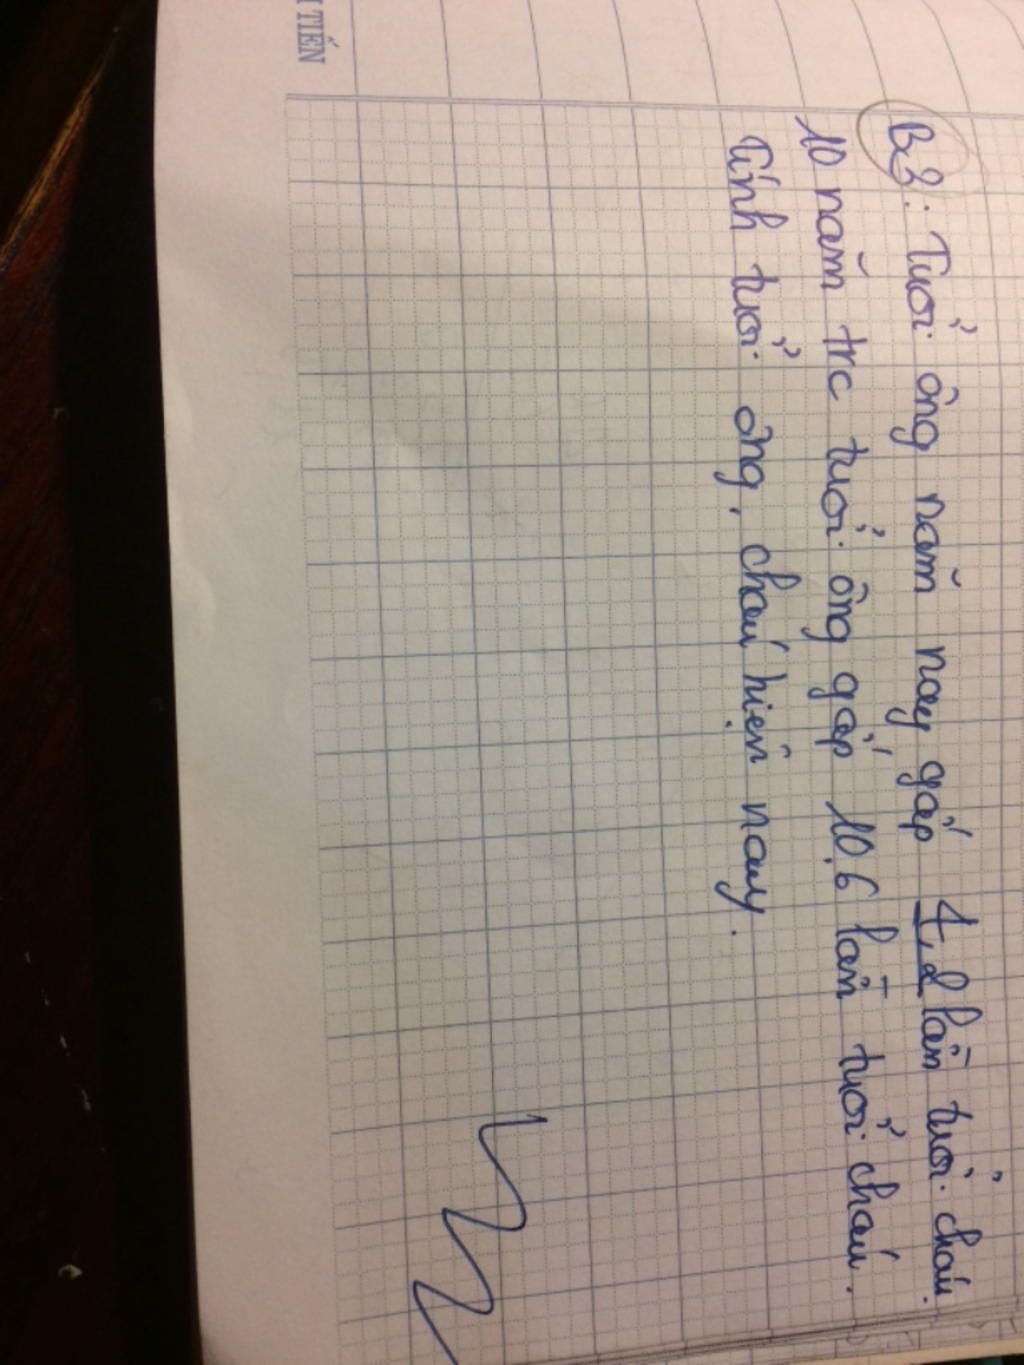 B2: Tuổi ông năm nay gấp 4,2 lần tuổi cháu.
10 năm trc tuổi ông gấp 10,6 lần tuổi cháu.
Tính tuổi ông, cháu hiện nay.
TIẾN